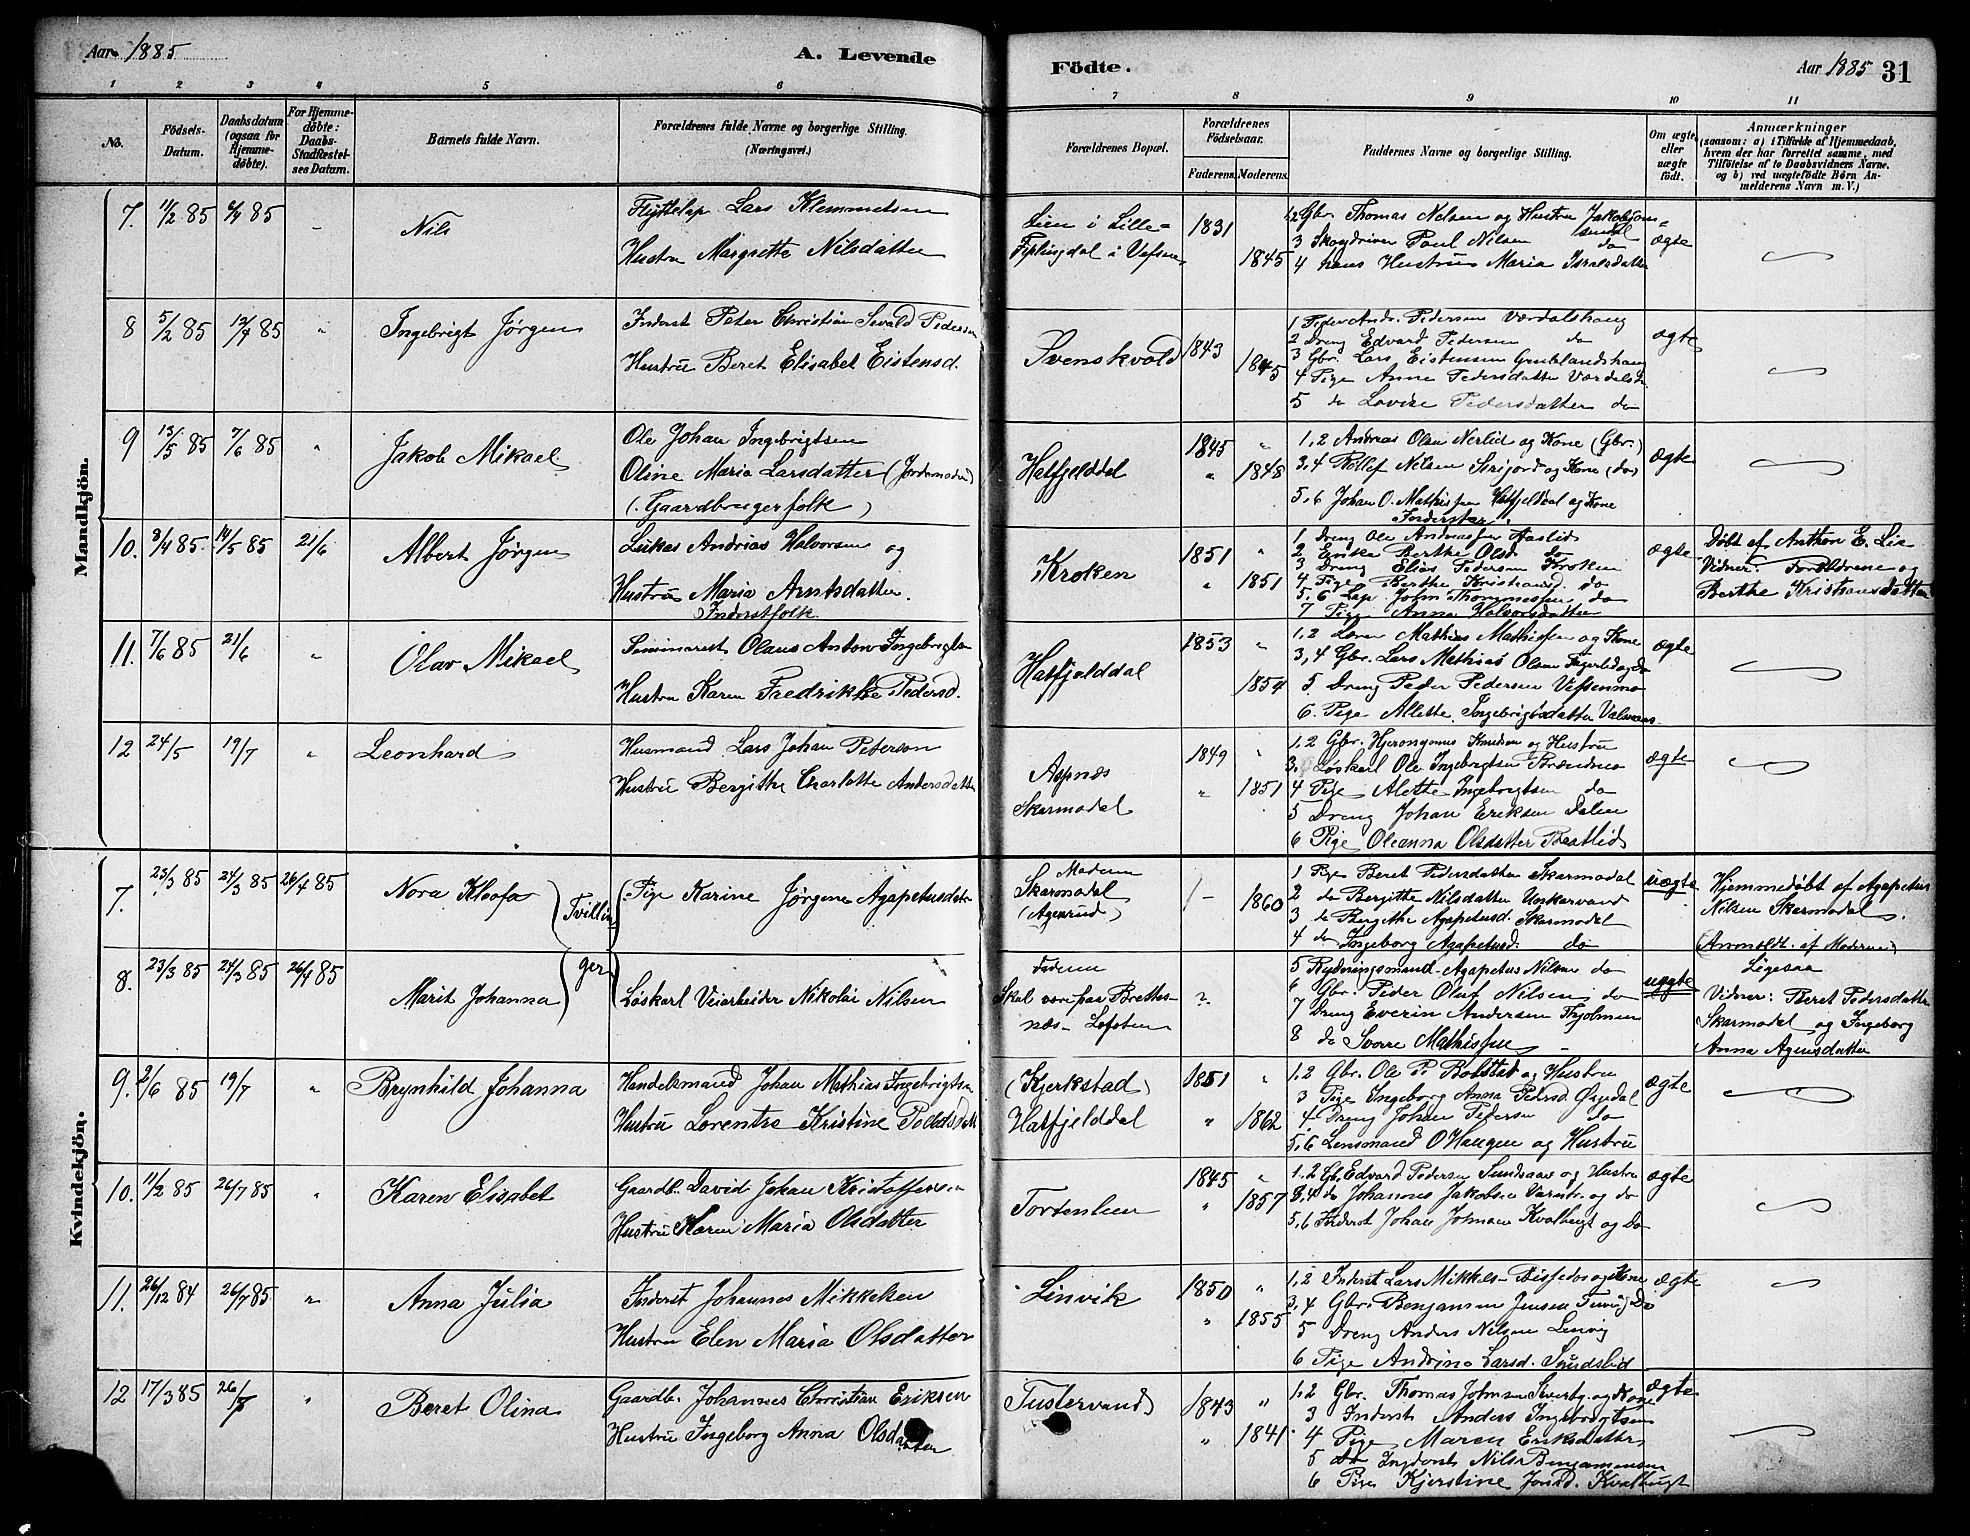 Aar 1885
A. Levende
Födte.
Aar 1885 31
1 2 3 4 5 6 7 8 9 10 11
No.
Födsels-
Datum.
Daabsdatum
(ogsaa for
Hjemme-
döbte).
For Hjemme-
døbte:
Daabs-
Stadfæstel-
ses Datum.
Barnets fulde Navn.
Forældrenes fulde Navne og borgerlige Stilling.
(Næringsvei.)
Forældrenes Bopæl.
Forældrenes
Födselsaar.
Faderens. Moderens.
Faddernes Navne og borgerlige Stilling.
Om ægte
eller
uægte
født.
Anmærkninger
(saasom: a) i Tilfælde af Hjemmedaab,
hvem der har forrettet samme, med
Tilföielse af to Daabsvidners Navne.
og b) ved uægtefödte Börn An-
melderens Navn m. V.)
Mandkjön.
7. 11/2 85 6/4 85 "
Nils
Flyttelap Lars Klemmetsen
Hustru Margrette Nilsdatter
Lien i Lille-
Fiplingdal i Vefsen
1831
1845
1,2 Gbr. Thomas Nilsen og Hustru
3 Skogdriver Paul Nilsen do
4 hans Hustru Maria Israelsdatter
ægte
8 5/2 85 12/4 85 "
Ingebrigt Jørgen
Inderst Peter Christian Sevald Pedersen
Hustru Beret Elisabet Eistensd.
Svenskvold
1843
1845
1 Peder Andr. Pedersen Værdalshaug
2 Dreng Edvard Pedersen do
3 Gbr. Lars Eistensen Grublandshaug
4 Pige Anne Pedersdatter
5 do Lovise Pedersdatter do
ægte
9 13/5 85 7/6 85 "
Jakob Mikael
Ole Johan Ingebrigtsen
Oline Maria Larsdatter (Jordemoder)
(Gaardbrugerfolk)
Hatfjelddal
1845 "
" 1848
1,2 Andreas Olsen Nerlid og Kone (Gbr.)
3,4 Rollef Nilsen Sirijord og Kone (do)
5,6 Johan O. Mathissen Hatfjelddal og Kone
Inderster
ægte
10. 3/4 85. 14/5 85 21/6
Albert Jørgen
Lukas Andrias Halvorsen og
Hustru Maria Arntsdatter.
Inderstfolk.
Kroken
1851 "
" 1851
1 Dreng Ole Andreassen Aaslid
2 Enke Berthe Olsd. do
3 Dreng Elias Pedersen Kroken
4 Pige Berthe Kristiansd. do
5,6 Lap John Thommessen do
7 Pige Anna Halvorsdatter
ægte
Døbt af Anthon E. Lie
Vidner: Forældrene og
Berthe Kristiansdatter
11. 7/6 85 21/6 "
Olav Mikael
Seminarist Olaus Anton Ingebrigtsen
Hustru Karen Fredrikke Pedersd.
Hatfjelddal
1853 "
1854
1,2 Lærer Mathias Mathissen og Kone
3,4 Gbr. Lars Mathias Olsen og do
5. Dreng Peder Pedersen Vefsenmo
6. Pige Allette Ingebrigtsdatter
ægte
12 24/5 19/7 "
Leonhard
Husmand Lars Johan Peterson
Hustru Bergitha Charlotte Andersdatter
Aspnæs
Skarmodal
1849 "
" 1851
1,2 Gbr. Hjeronymus Knudsen og Hustru
3. Løskarl Ole Ingebrigtsen Brændmo
4 Pige Alette Ingebrigtsen do
5 Dreng Johan Eriksen Dalen
6 Pige Oleanna Olsdatter Brattlid
ægte
Kvindekjön.
7. 23/3 85 24/3 85 26/4 85
Nora Kleofa
Tvillin-
Pige Karine Jørgine Agapetusdatr
Moderen
Skarmodal
(Agenrud)
1860
1 Pige Beret Pedersdatter Skarmodal
2 do Bergitte Nilsdatter Unkervand
3 do Bergithe Agapetusd. Skarmodal
4 do Ingeborg Agapetusd. do
uægte
Hjemmedøbt af Agapetus
Nilsen Skarmodal.
(Anmeldt af Moderen)
8. 23/3 85 24/3 85 26/4 85
Marit Johanna
ger
Løskarl Veiarbeider Nikolai Nilsen
Faderen
Skal være paa Brettes-
næs - Lofoten
?
5 Rydningsmand Agapetus Nilsen do
6 Gbr. Peder Oluf Nilsen do
7 Dreng Everin Andersen
8 do Sverre Mathissen
uægte
Ligesaa
Vidner: Beret Pedersdatter
Skarmodal og Ingeborg
Anna Agensdatter
9. 2/6 85 19/7 "
Brynhild Johanna
Handelsmand Johan Mathias Ingebrigtsen
Hustru Lorentse Kristine
(Kjerkstad)
Hatfjelddal
1851 "
" 1862
1,2 Gbr. Ole P. Bolstad og Hustru
3 Pige Ingeborg Anna Pedersd.
4 Dreng Johan Pedersen do
5,6 Lensmand O Haugen og Hustru
ægte
10. 11/2 85 26/7 85 "
Karen Elisabet
Gaardb. David Johan Kristoffersen
Hustru Karen Maria Olsdatter
Tortenlien
1845 "
" 1857
1,2 Gb. Edvard Pedersen Sundsaas og Hustru
3,4 do Johannes Jakobsen og do
5,6 Inderst Johan Johnsen Kvalbugt og do
ægte
11. 26/12 84 26/7 85 "
Anna Julia
Inderst Johannes Mikkelsen
Hustru Elen Maria Olsdatter
Linvik
1850 "
" 1855
1,2 Inderst Lars Mikkels- og Kone
3,4 Gbr. Benjamin Jensen do
5 Dreng Anders Nilsen Lenvig
6 Pige Andrine Larsd.
ægte
12 17/3 85 26/7 "
Beret Olina
Gaardb. Johannes Christian Eriksen
Hustru Ingeborg Anna Olsdatter
Tustervand
1843 "
" 1841
1,2 Gbr. Thomas Johnsen og Kone
3 Inderst Anders Ingebrigtsen
4 Pige Maren Eriksdatter
5 Inderst Nils Benjaminsen
6 Pige Kjerstine Jonsd. Kvalbugt
ægte